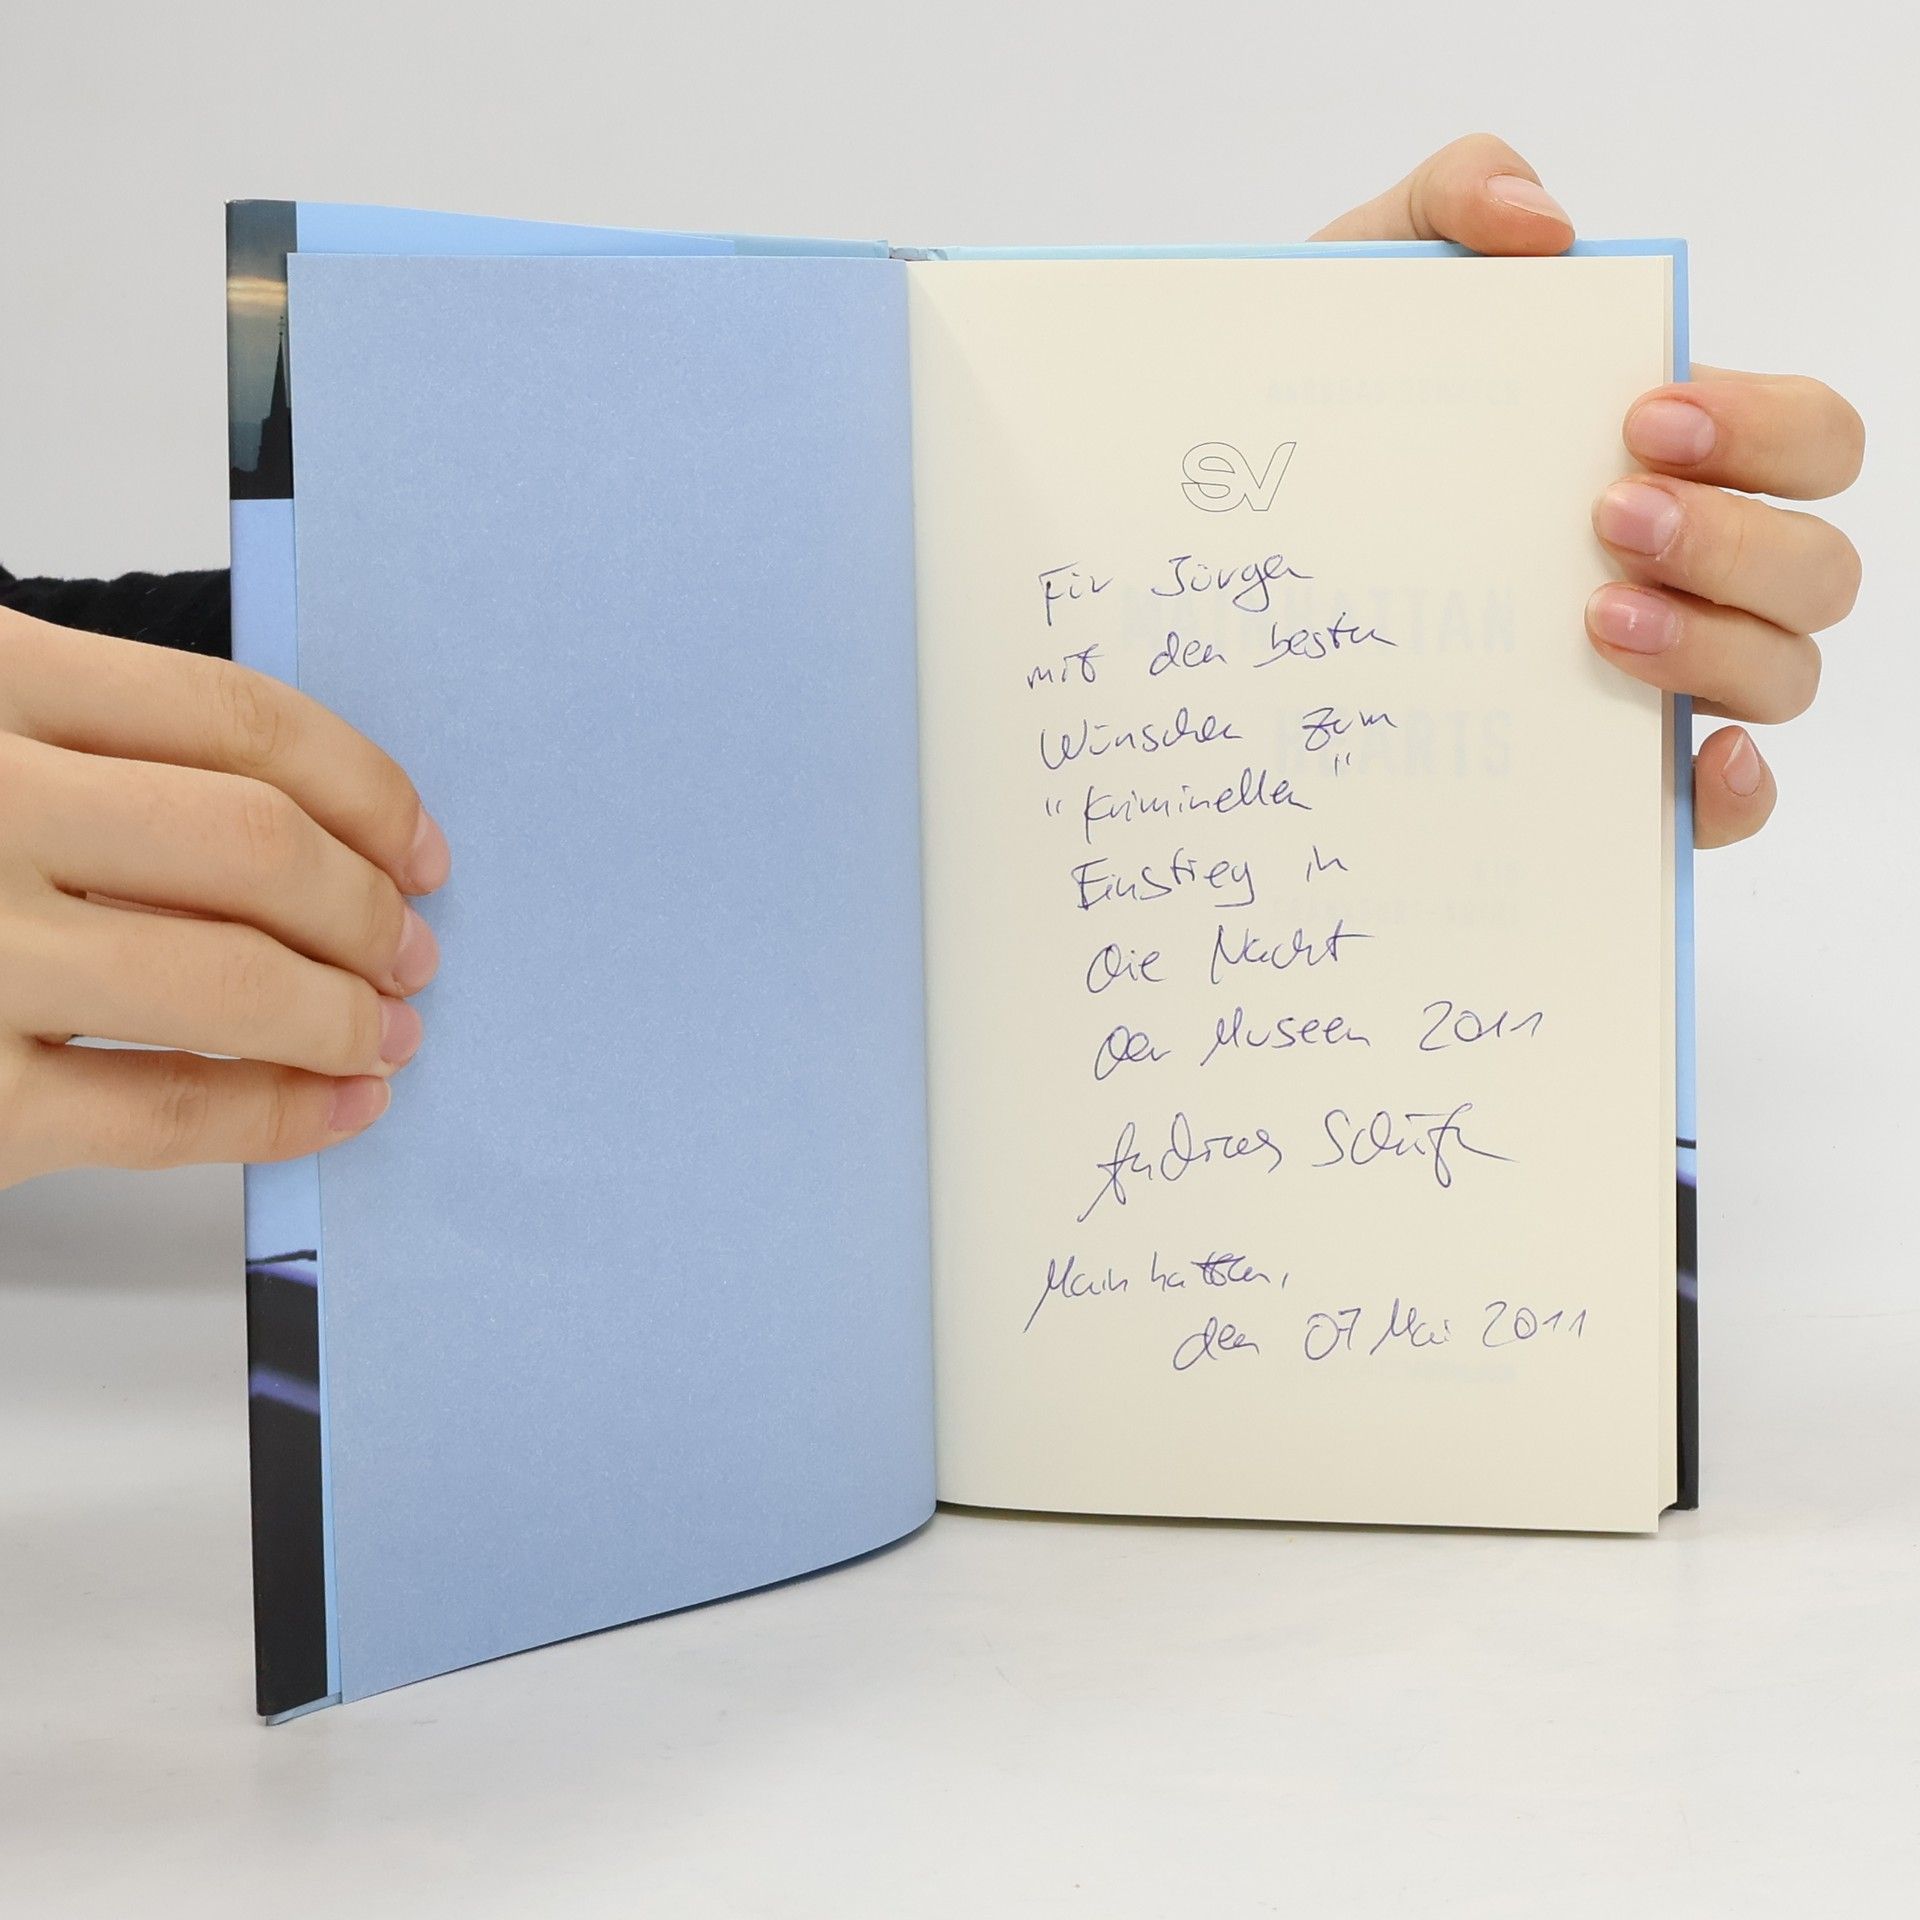 SV
Für Jürgen
mit den besten
Wünschen zum
"kriminellen"
Einstieg in
die Nacht
der Museen 2011
Andreas
Mainhatten,
den 07 Mai 2011